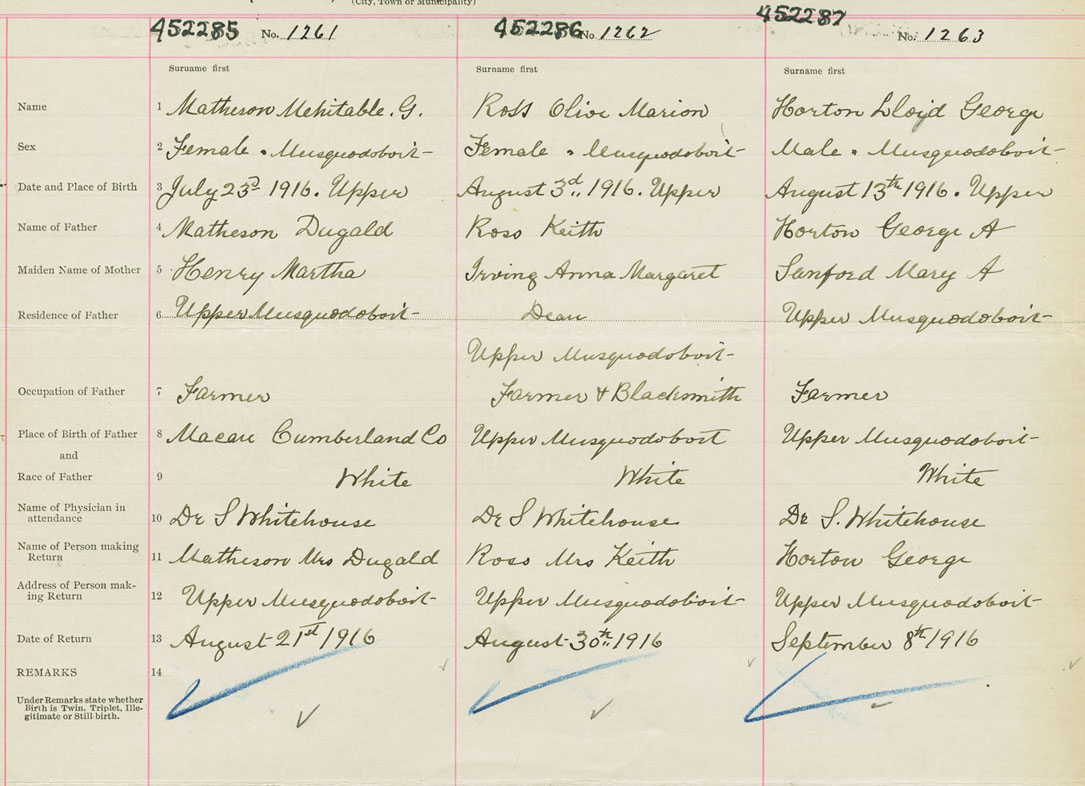 (City, Town or Municipality)
452285 No. 1261 452286 No 1262 452287 No. 1263
Surname first Surname first Surname first
Name 1 Matheson Mehitable. G. Ross Olive Marion Horton Lloyd George
Sex 2 Female. Musquodoboit Female. Musquodoboit Male. Musquodoboit
Date and Place of Birth 3 July 23rd 1916. Upper August 3d.. 1916. Upper August 13th 1916. Upper
Name of Father 4 Matheson Dugald Ross Keith Horton George A
Maiden Name of Mother 5 Henry Martha Irving Anna Margaret Sanford Mary A
Residence of Father 6 Upper Musquodoboit Dean Upper Musquodoboit
Upper Musquodoboit
Occupation of Father 7 Farmer Farmer & Blacksmith Farmer
Place of Birth of Father 8 Macan Cumberland Co Upper Musquodoboit Upper Musquodoboit
and
Race of Father 9 White White White
Name of Physician in
attendance 10 Dr S Whitehouse Dr S Whitehouse Dr S. Whitehouse
Name of Person making
Return 11 Matheson Mrs Dugald Ross Mrs Keith Horton George
Address of Person mak-
ing Return 12 Upper Musquodoboit Upper Musquodoboit Upper Musquodoboit
Date of Return 13 August 21st 1916 August 30th.. 1916 September 8th 1916
REMARKS 14
Under Remarks state whether
Birth is Twin, Triplet, Ille-
gitimate or Still-birth.